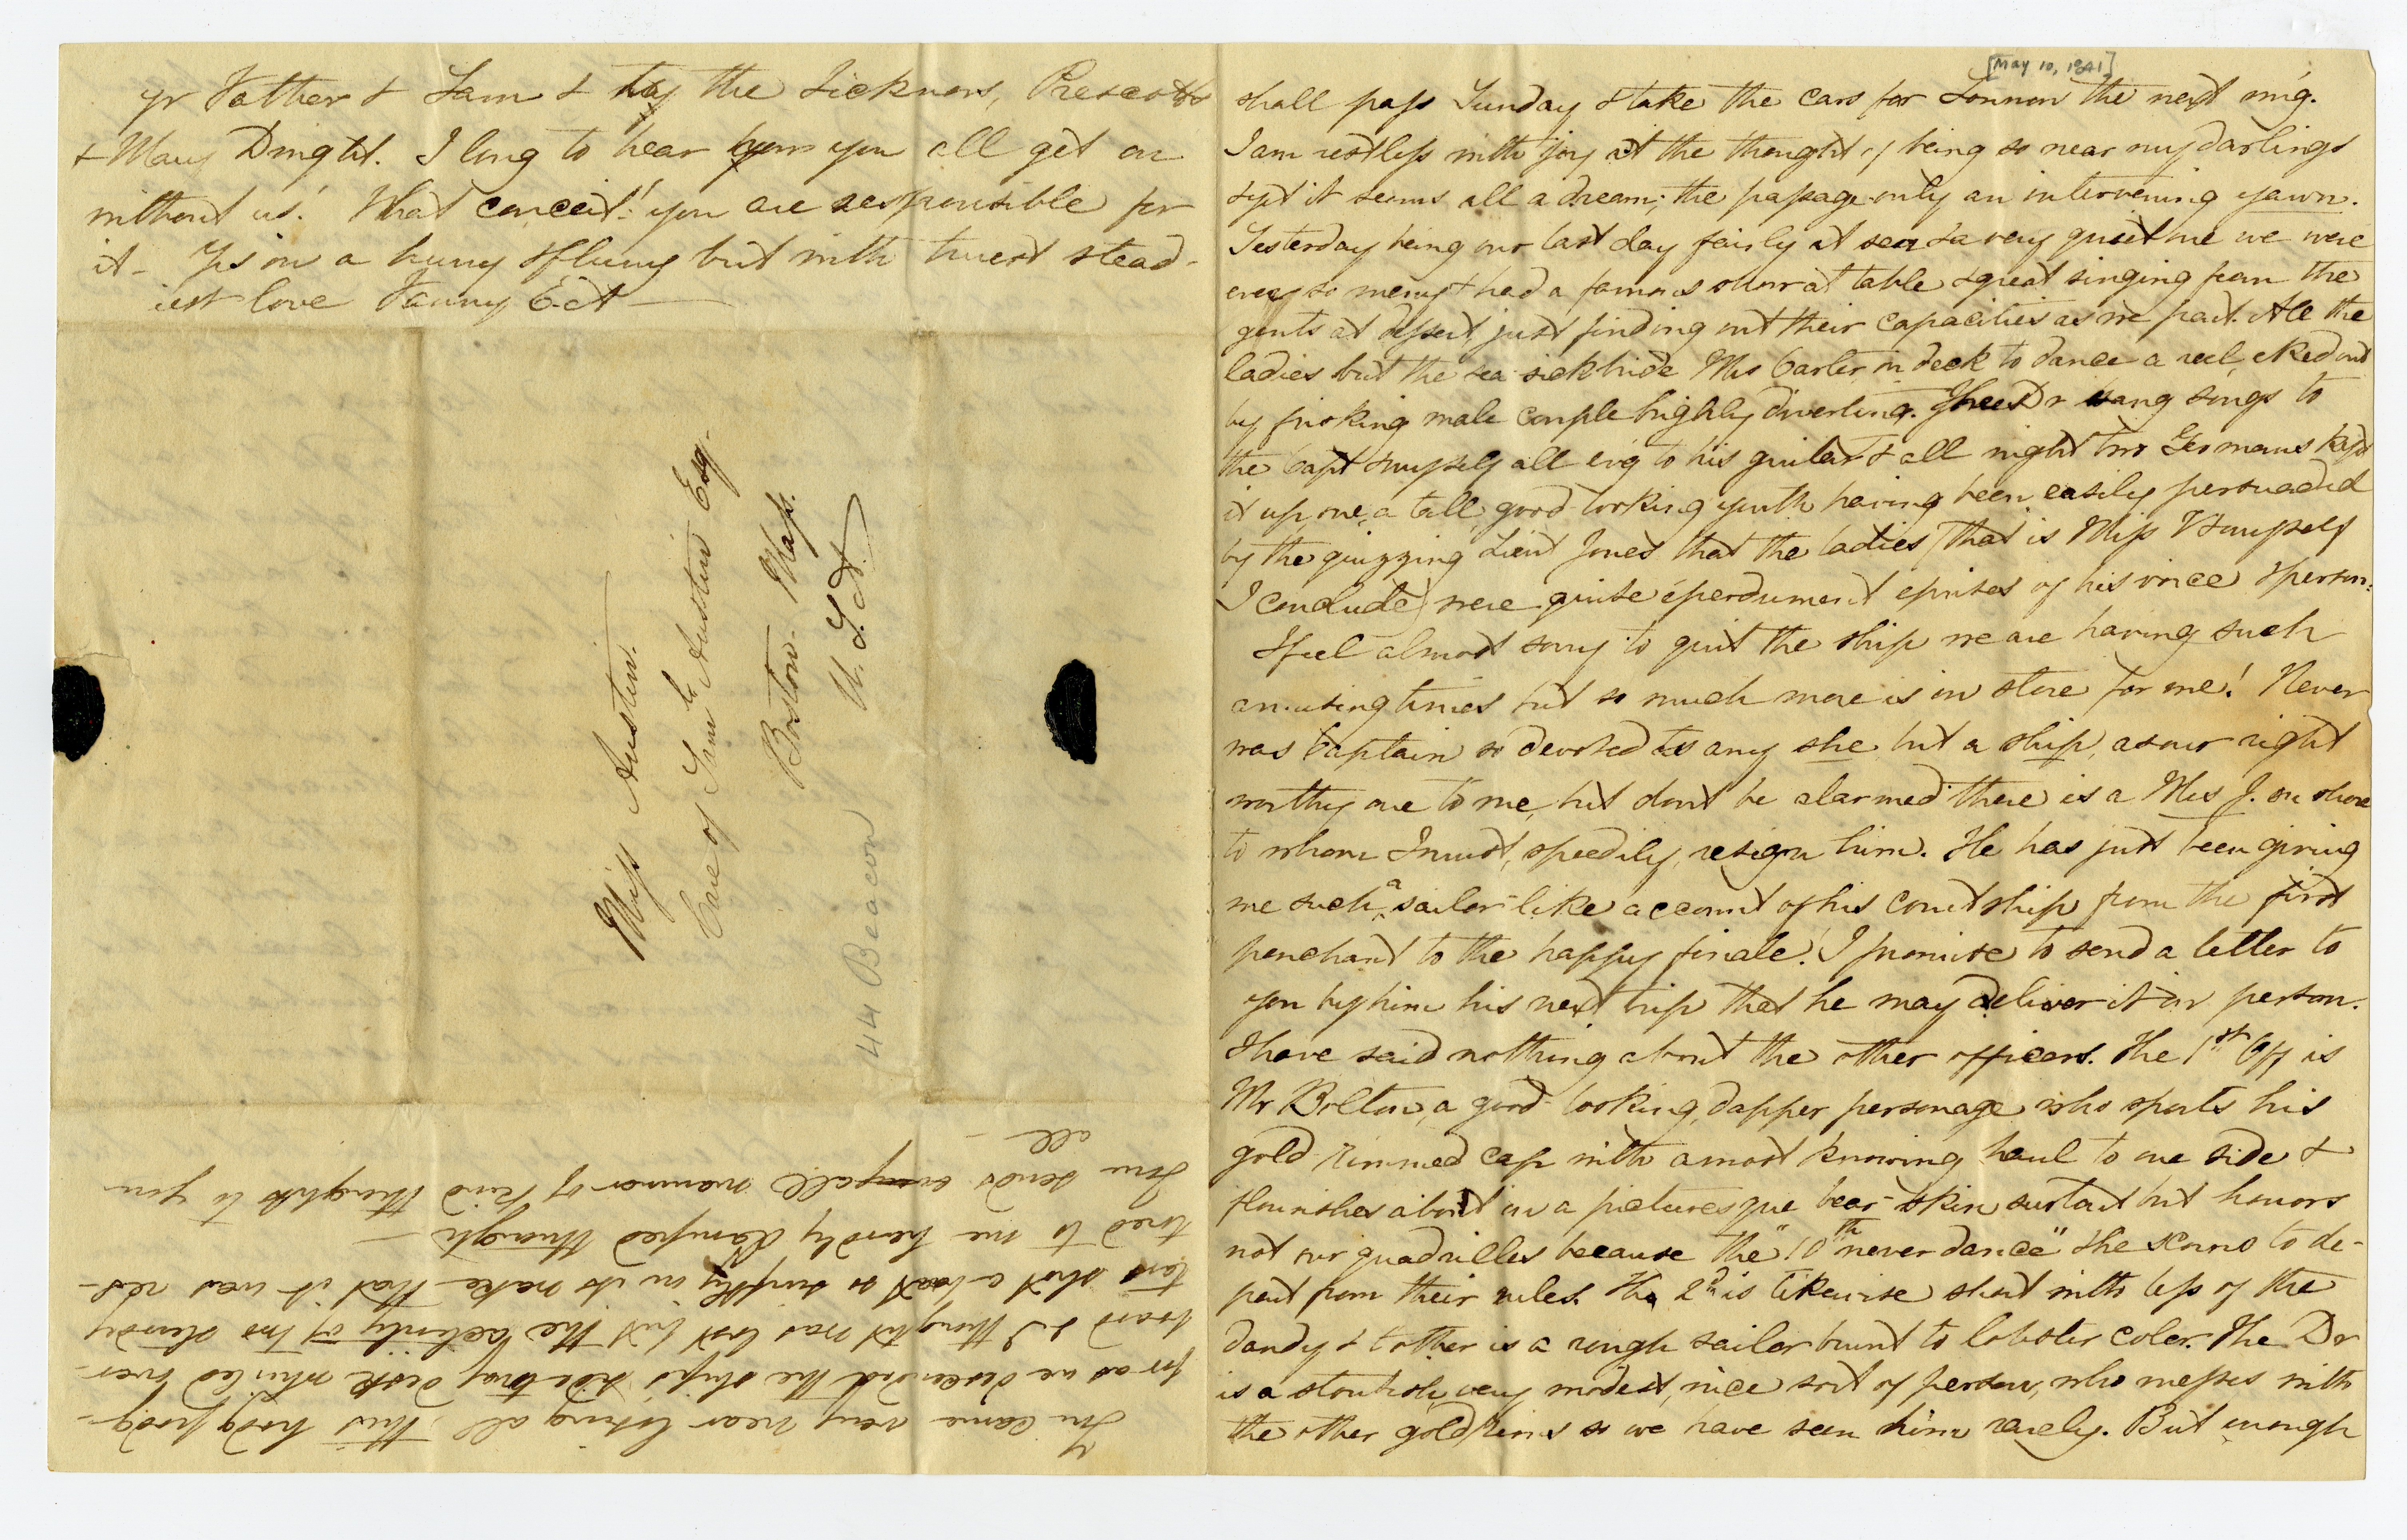 [May 10, 1841]
shall pass Sunday & take the cars for Lonnon the next m'g.
I am restless with joy at the thought of being so near my darlings
& yet it seems all a dream; the passage only an intervening yawn.
Yesterday being our last day fairly at sea & a very quiet one we were
ever so merry & had a famous show at table & great singing from the
gents at dessert just finding out their capacities as we part. All the
ladies but the sea-sick bride Mrs Carter on deck to dance a reel, eked out
by frisking male couple highly diverting. The Dr sang songs to
the Capt & myself all ev'g to his guitar & all night two Germans kept
it up, one, a tall, good-looking youth having been easily persuaded
by the quizzing Lieut Jones that the ladies (that is Miss V & myself
I conclude) were quite éperdument éprises of his voice & person.
I feel almost sorry to quit the ship we are having such
amusing times but so much more is in store for me! Never
was Captain so devoted to any she but a ship, as our right
worthy one to me, but don't be alarmed there is a Mrs J. on shore
to whom I must, speedily, resign him. He has just been giving
me such a sailor-like account of his courtship from the first
penchant to the happy finale! I promise to send a letter to
you by him his next trip that he may deliver it in person.
I have said nothing about the other officers. The 1st Off is
Mr Bolton, a good-looking, dapper personage who sports his
gold-rimmed cap with a most knowing haul to one side &
flourishes about in a picturesque bear-skin surtout but honors
not our quadrilles because the "10th never dance" & he scorns to de-
part from their rules. The 2d is likewise short with less of the
dandy & t'other is a rough sailor burnt to lobster color. The Dr
is a stoutish, very modest, nice sort of person, who messes with
the other gold rims so we have seen him rarely. But enough
yr Father & Sam & the Sickness, Prescotts
& Mary Dwight. I long to hear how you all get on
without us! What conceit! you are responsible for
it. Y'rs in a hurry & flurry but with truest stead-
iest love Fanny E. A
Miss Austin.
Care of Saml Austin Esq.
Boston. Mass.
U.S.A.
44 Beacon
You came very near losing all this hodgepodg-
for as we descended the ship's side my desk whirled over-
board & I thought was lost but the celerity of two sturdy
tars shot a boat so swiftly in its wake that it was res-
tored to me hardly damped through —
Tom sends all manner of kind thoughts to you
all —